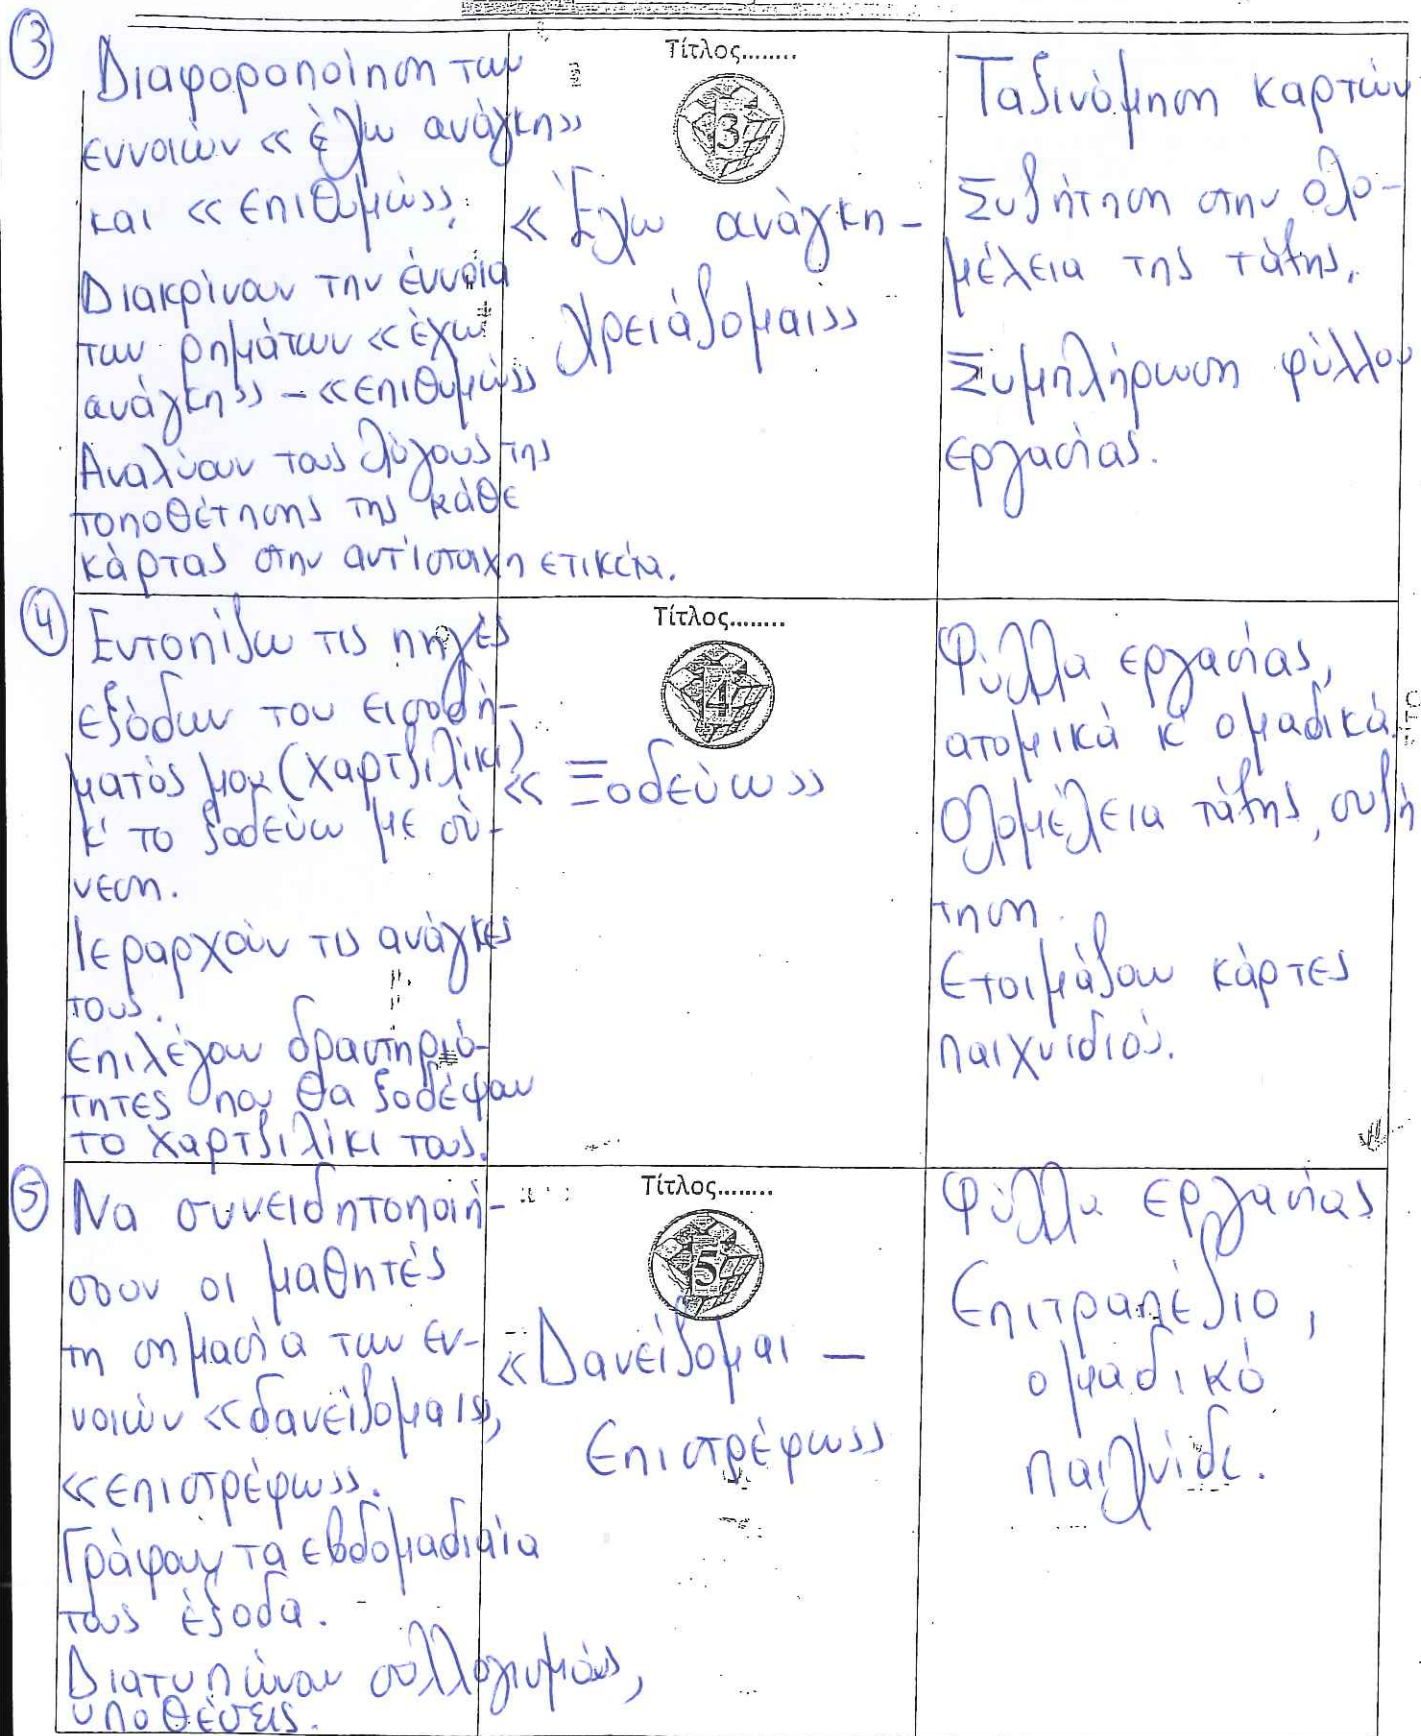 ③
Διαφοροποίηση των
εννοιών «έχω ανάγκη»
και «επιθυμώ».
Διακρίνουν την έννοια
των ρημάτων «έχω
ανάγκη» – «επιθυμώ»
Αναλύουν τους λόγους της
τοποθέτησης της κάθε
κάρτας στην αντίστοιχη ετικέτα.
Τίτλος........
3
«Έχω ανάγκη –
χρειάζομαι»
Ταξινόμηση καρτών
Συζήτηση στην ολο-
μέλεια της τάξης.
Συμπλήρωση φύλλου
εργασίας.
④
Εντοπίζω τις πηγές
εξόδων του εισοδή-
ματός μου (χαρτζιλίκι)
κ' το ξοδεύω με σύ-
νεση.
Ιεραρχούν τις ανάγκες
τους.
Επιλέγουν δραστηριό-
τητες που θα ξοδέψουν
το χαρτζιλίκι τους.
Τίτλος........
4
«Ξοδεύω»
Φύλλα εργασίας,
ατομικά κ' ομαδικά.
Ολομέλεια τάξης, συζή
τηση.
Ετοιμάζουν κάρτες
παιχνιδιού.
⑤
Να συνειδητοποιή-
σουν οι μαθητές
τη σημασία των εν-
νοιών «δανείζομαι»,
«επιστρέφω».
Γράφουν τα εβδομαδιαία
τους έξοδα.
Διατυπώνουν συλλογισμούς,
υποθέσεις.
Τίτλος........
5
«Δανείζομαι –
Επιστρέφω»
Φύλλα εργασίας
Επιτραπέζιο,
ομαδικό
παιχνίδι.